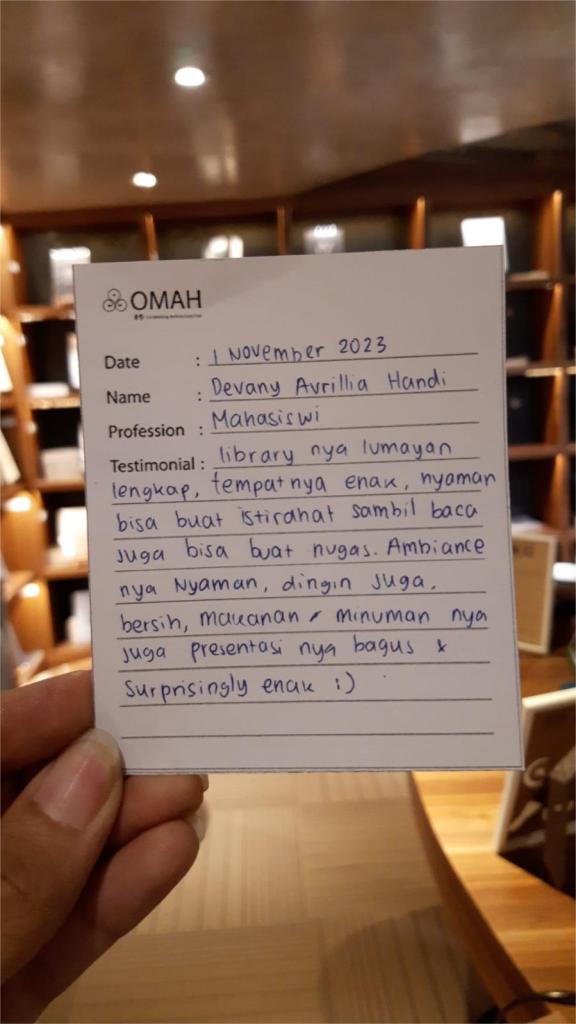 OMAH
Date : 1 November 2023
Name : Devany Avrillia Handi
Profession : Mahasiswi
Testimonial : library nya lumayan
lengkap, tempatnya enak, nyaman
bisa buat istirahat sambil baca
juga bisa buat nugas. Ambiance
nya Nyaman, dingin juga,
bersih, makanan / minuman nya
juga presentasi nya bagus &
Surprisingly enak :)